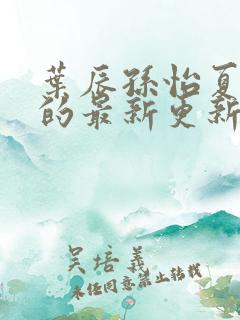 葉辰孫怡夏
的最新更新
吴培義
未经同意禁止转载